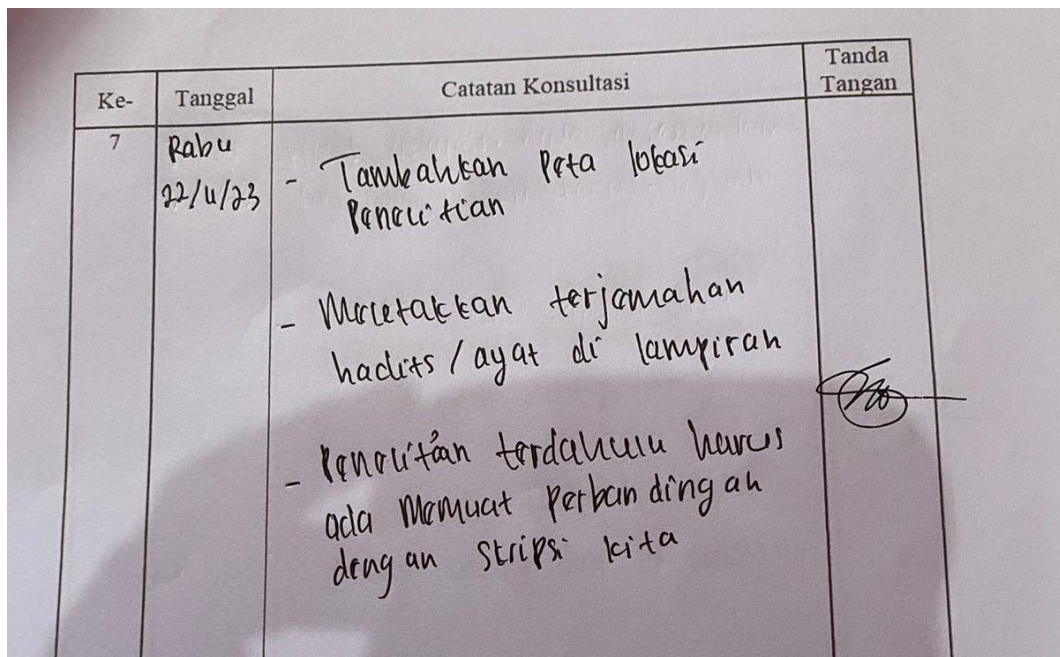 Ke-
Tanggal
Catatan Konsultasi
Tanda
Tangan
7
Rabu
22/11/23
- Tambahkan Peta lokasi
Penelitian
- Meletakkan terjemahan
hadits / ayat di lampiran
- Penelitian terdahulu harus
ada memuat Perbandingan
dengan skripsi kita